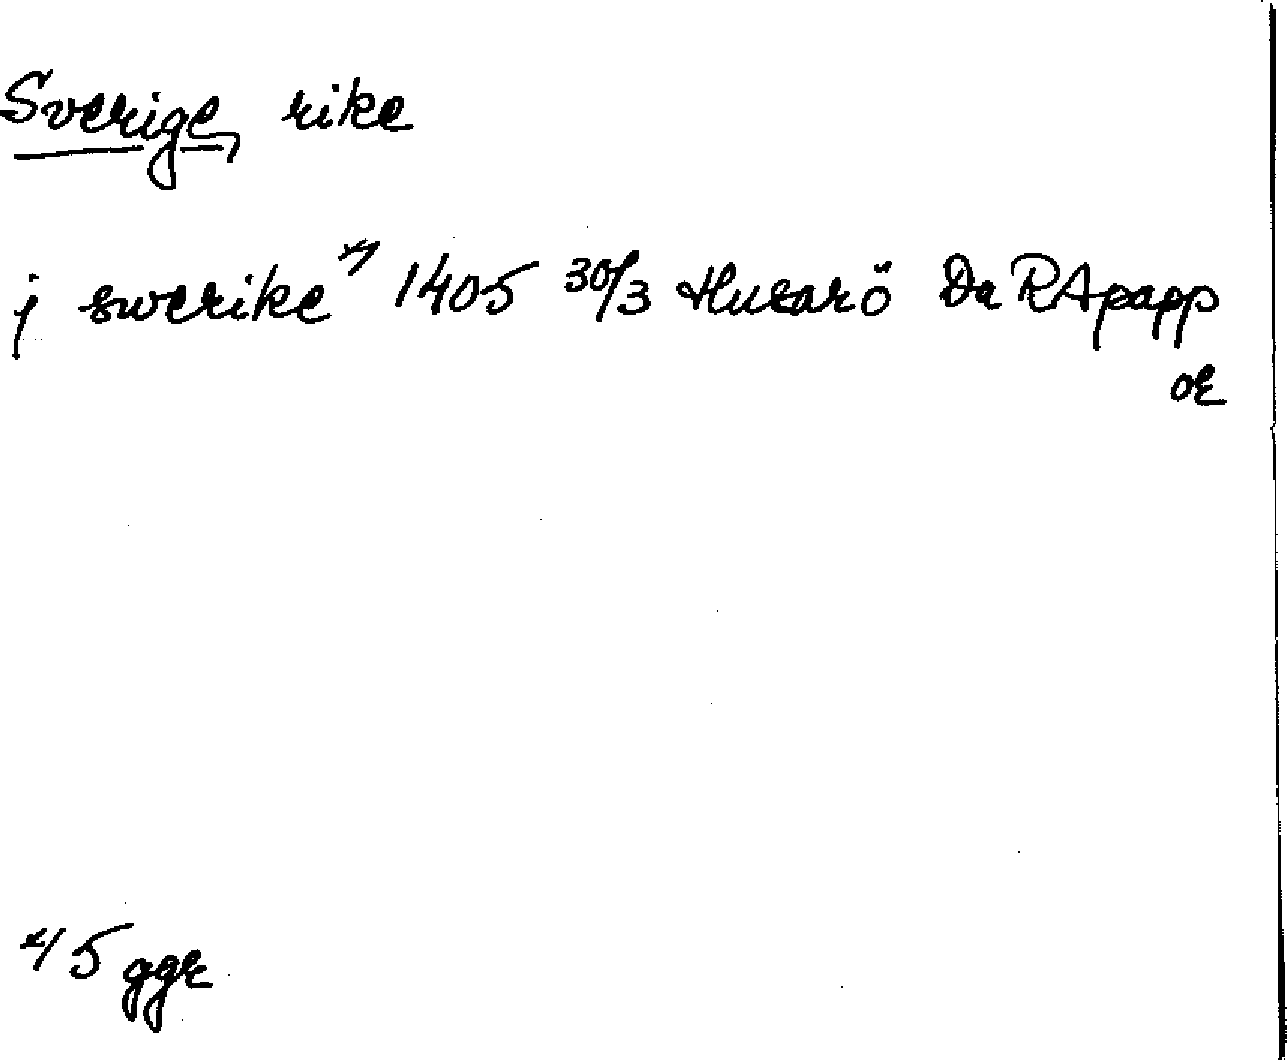 Sverige, rike
j swerike x) 1405 30/3 Husarö Da RApapp
or
x/ 5 ggr